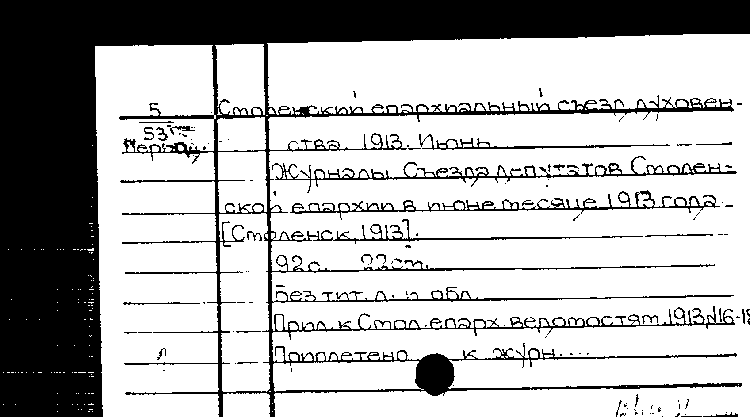 5 Смоленский епархиальный съезд духовен-
53
Период. ства. 1913. Июнь.
Журналы Съезда депутатов Смолен-
ской епархии в июне месяце 1913 года.
[Смоленск, 1913].
92с. 22см.
Без тит. л. и обл.
Прил. к Смол. епарх. ведомостям. 1913, №16-18
Приплетено к журн....